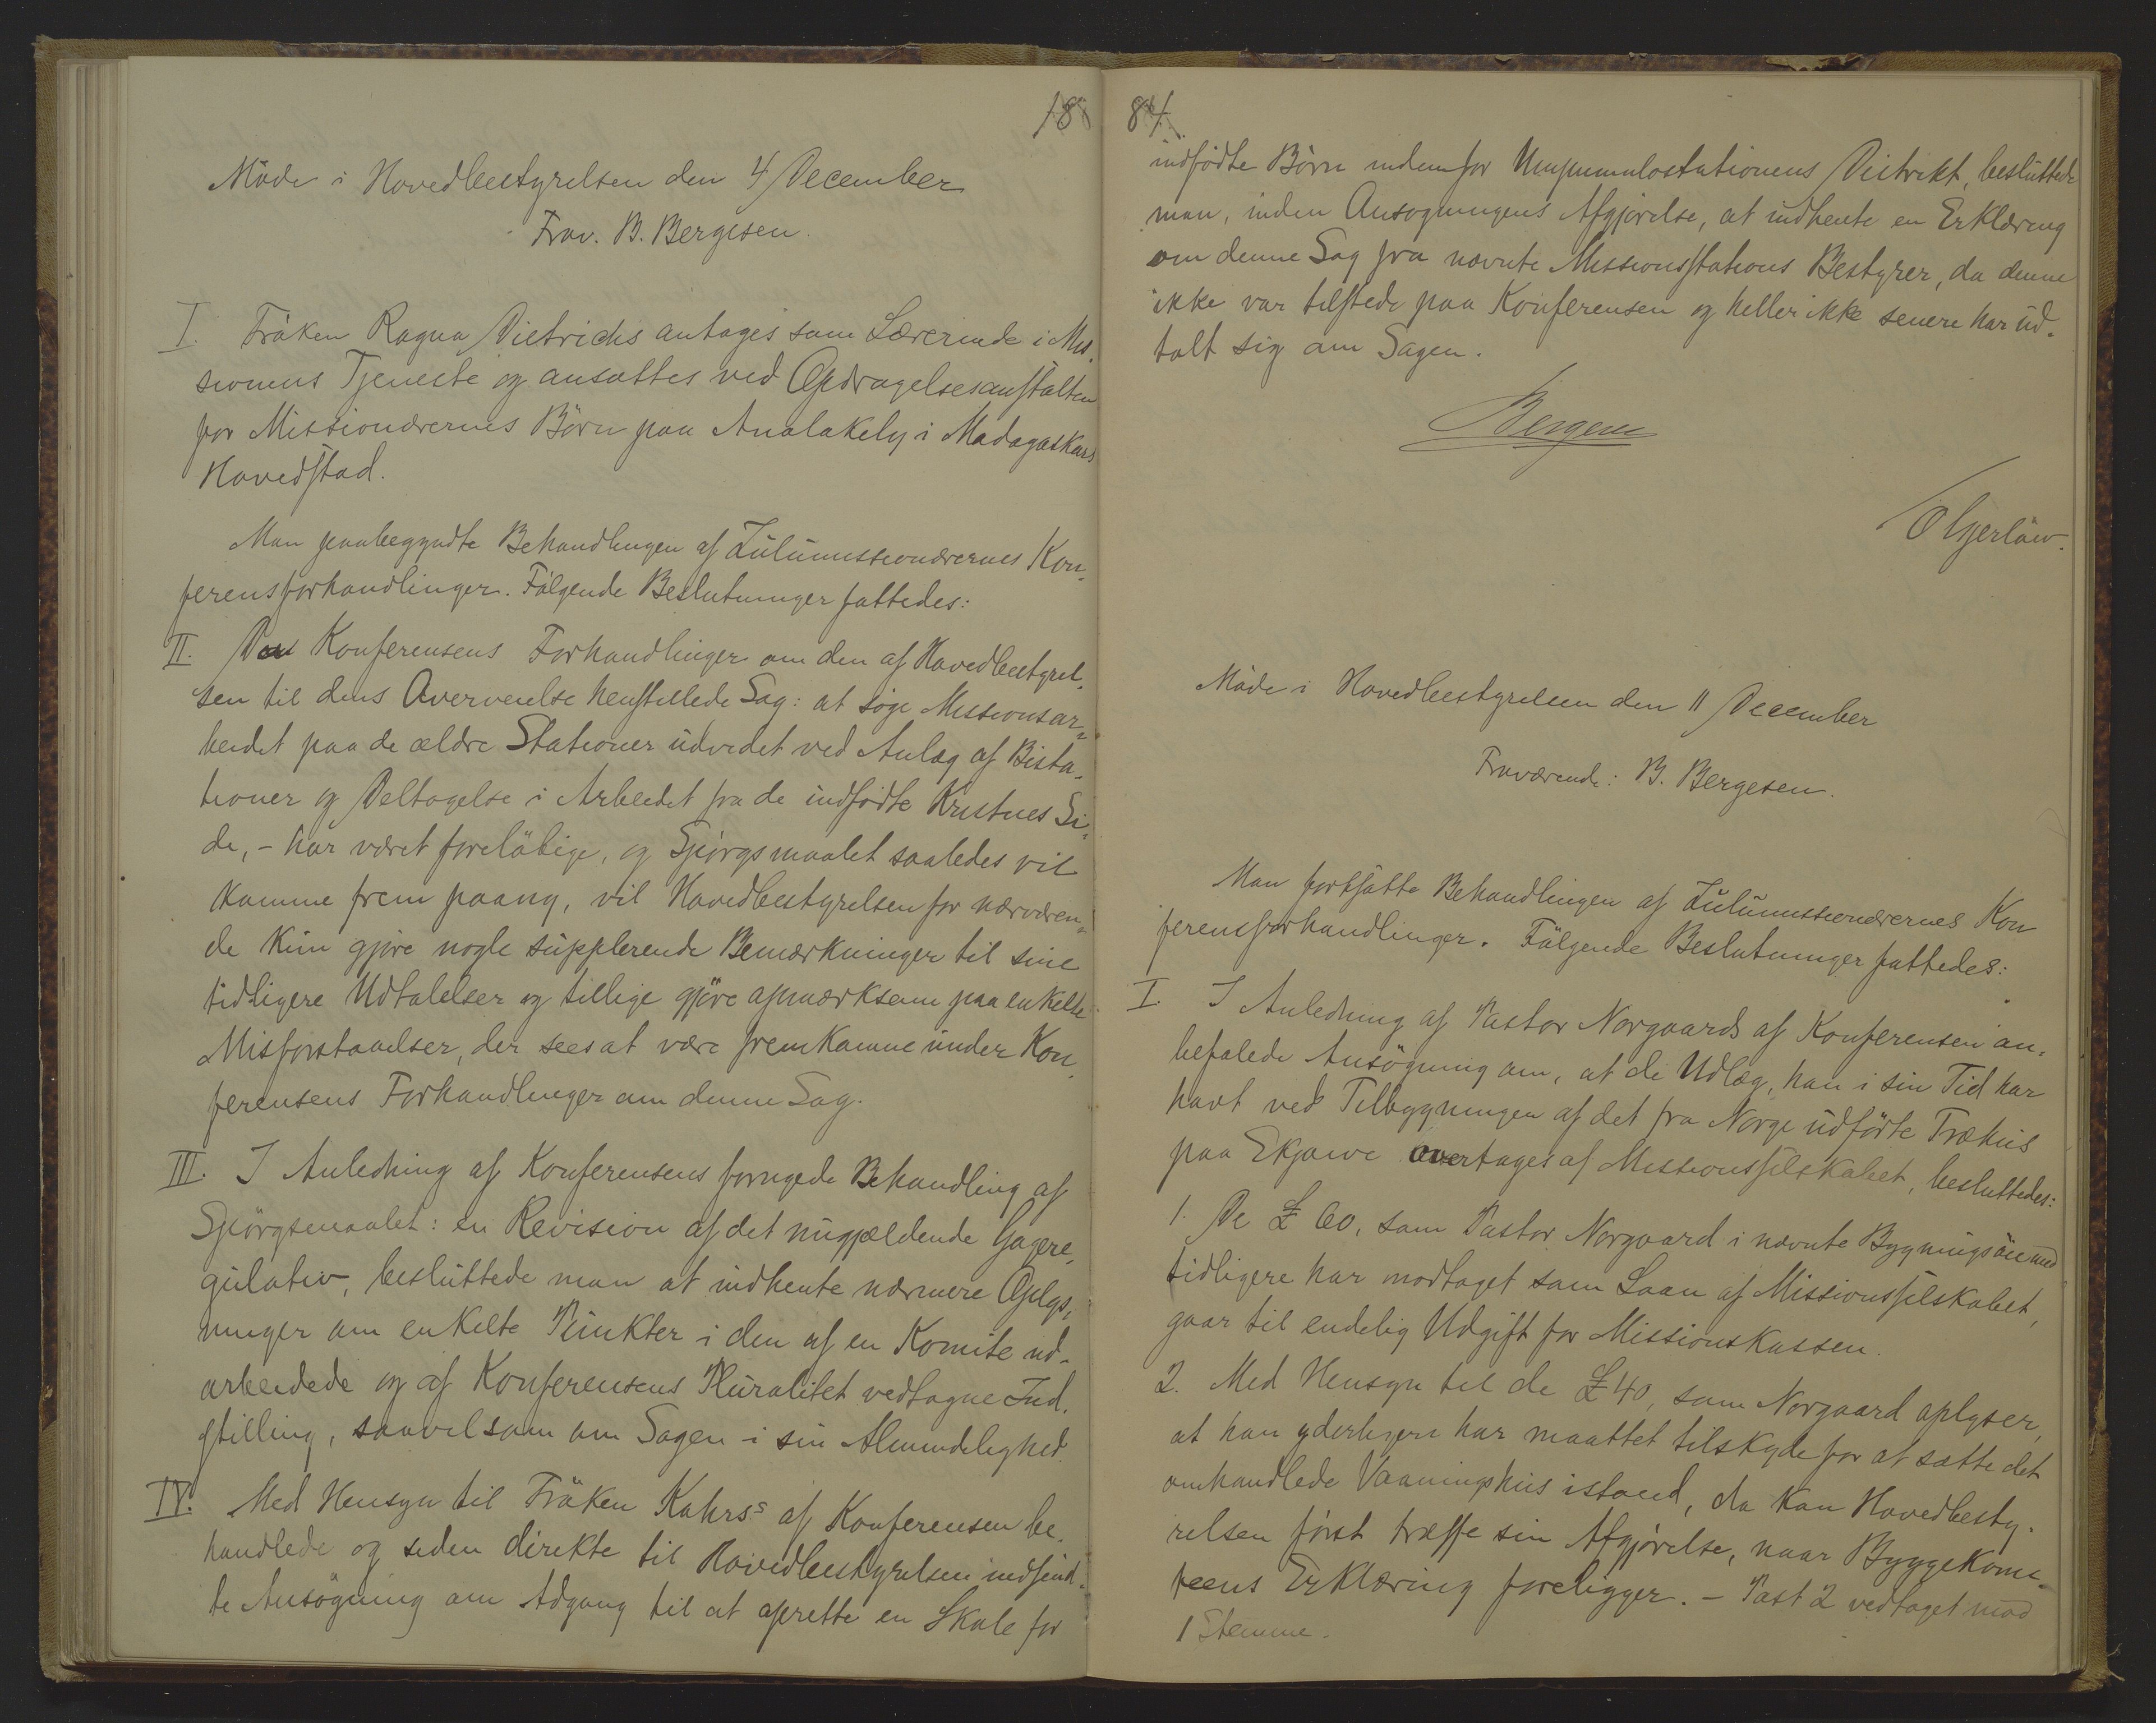 18
Møde i Hovedbestyrelsen den 4 December
Frav. B. Bergesen.
I. Frøken Ragna Dietrichs antages som Lærerinde i Mis-
sionens Tjeneste og ansættes ved Opdragelsesanstalten
for Missionærernes Børn paa Analakely i Madagaskars
Hovedstad.
Man paabegyndte Behandlingen af Zulumissionærernes Kon-
ferensforhandlinger. Følgende Beslutninger fattedes:
II. Da Konferensens Forhandlinger om den af Hovedbestyrel-
sen til dens Overveielse henstillede Sag: at søge Missionsar-
beidet paa de ældre Stationer udvidet ved Anlæg af Bista-
tioner og Deltagelse i Arbeidet fra de indfødte Kristnes Si-
de, - har været foreløbige, og Spørgsmaalet saaledes vil
komme frem paany, vil Hovedbestyrelsen for nærværen-
de kun gjøre nogle supplerende Bemærkninger til sine
tidligere Udtalelser og tillige gjøre opmærksom paa enkelte
Misforstaaelser, der sees at være fremkomne under Kon-
ferensens Forhandlinger om denne Sag.
III. I Anledning af Konferensens fornyede Behandling af
Spørgsmaalet: en Revision af det nugjældende Gagere-
gulativ, besluttede man at indhente nærmere Oplys-
ninger om enkelte Punkter i den af en Komite ud-
arbeidede og af Konferensens Pluralitet vedtagne Ind-
stilling, saavelsom om Sagen i sin Almindelighed.
IV. Med Hensyn til Frøken Kahrs's af Konferensen be-
handlede og siden direkte til Hovedbestyrelsen indsend-
te Ansøgning om Adgang til at oprette en Skole for
84.
indfødte Børn indenfor Umpumulostationens Distrikt, besluttede
man, inden Ansøgningens Afgjørelse, at indhente en Erklæring
om denne Sag fra nævnte Missionsstations Bestyrer, da denne
ikke var tilstede paa Konferensen og heller ikke senere har ud-
talt sig om Sagen.
Møde i Hovedbestyrelsen den 11 December
Fraværende: B. Bergesen.
Man fortsatte Behandlingen af Zulumissionærernes Kon
ferensforhandlinger. Følgende Beslutninger fattedes:
I. I Anledning af Pastor Norgaards af Konferensen an-
befalede Ansøgning om, at de Udlæg, han i sin Tid har
havt ved Tilbygningen af det fra Norge udførte Træhus
paa Ekjowe overtages af Missionsselskabet, besluttedes:
1. De £ 60, som Pastor Norgaard i nævnte Bygningsøiemed
tidligere har modtaget som Laan af Missionsselskabet,
gaar til endelig Udgift for Missionskassen.
2. Med Hensyn til de £ 40, som Norgaard oplyser,
at han yderligere har maattet tilskyde for at sætte det
omhandlede Vaaningshus istand, da kan Hovedbesty-
relsen først træffe sin Afgjørelse, naar Byggekomi-
teens Erklæring foreligger. - Post 2 vedtaget mod
1 Stemme.